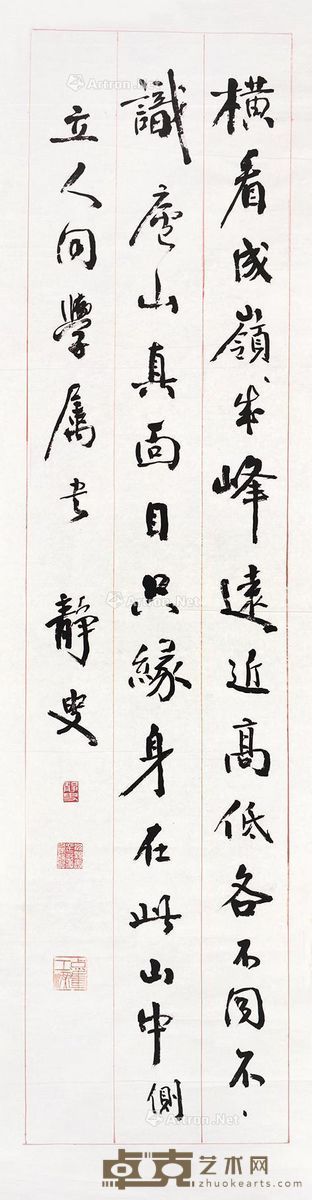 橫看成嶺成峰遠近高低各不同不、
識廬山真面目只緣身在此山中側
立人同學屬書 靜叟
Artron.Net
Artron.Net
Artron.Net
卓克艺术网
www.zhuokearts.com